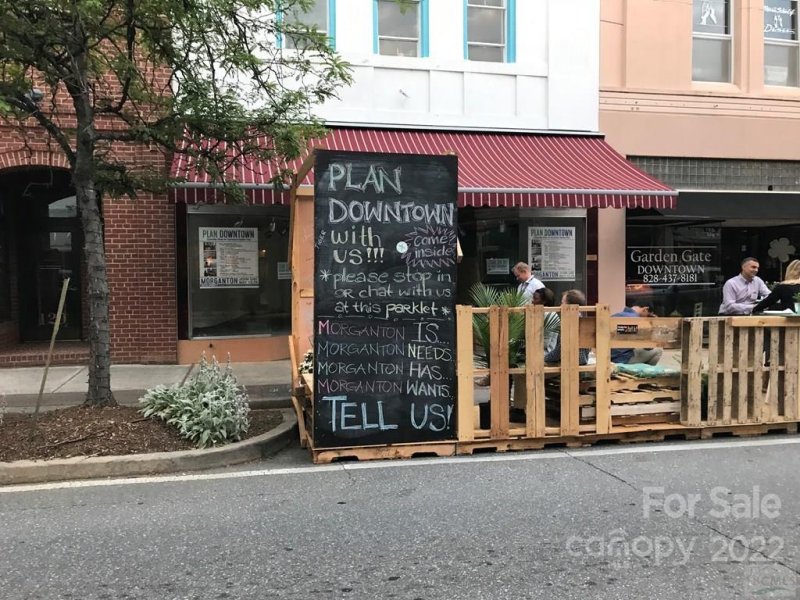 PLAN
DOWNTOWN
with
us!!!
come
inside
*please stop in
or chat with us
at this parklet*
MORGANTON IS...
MORGANTON NEEDS...
MORGANTON HAS...
MORGANTON WANTS...
TELL US!
PLAN DOWNTOWN
MORGANTON
PLAN DOWNTOWN
Garden Gate
DOWNTOWN
828-437-8181
For Sale
canopy 2022
MLS